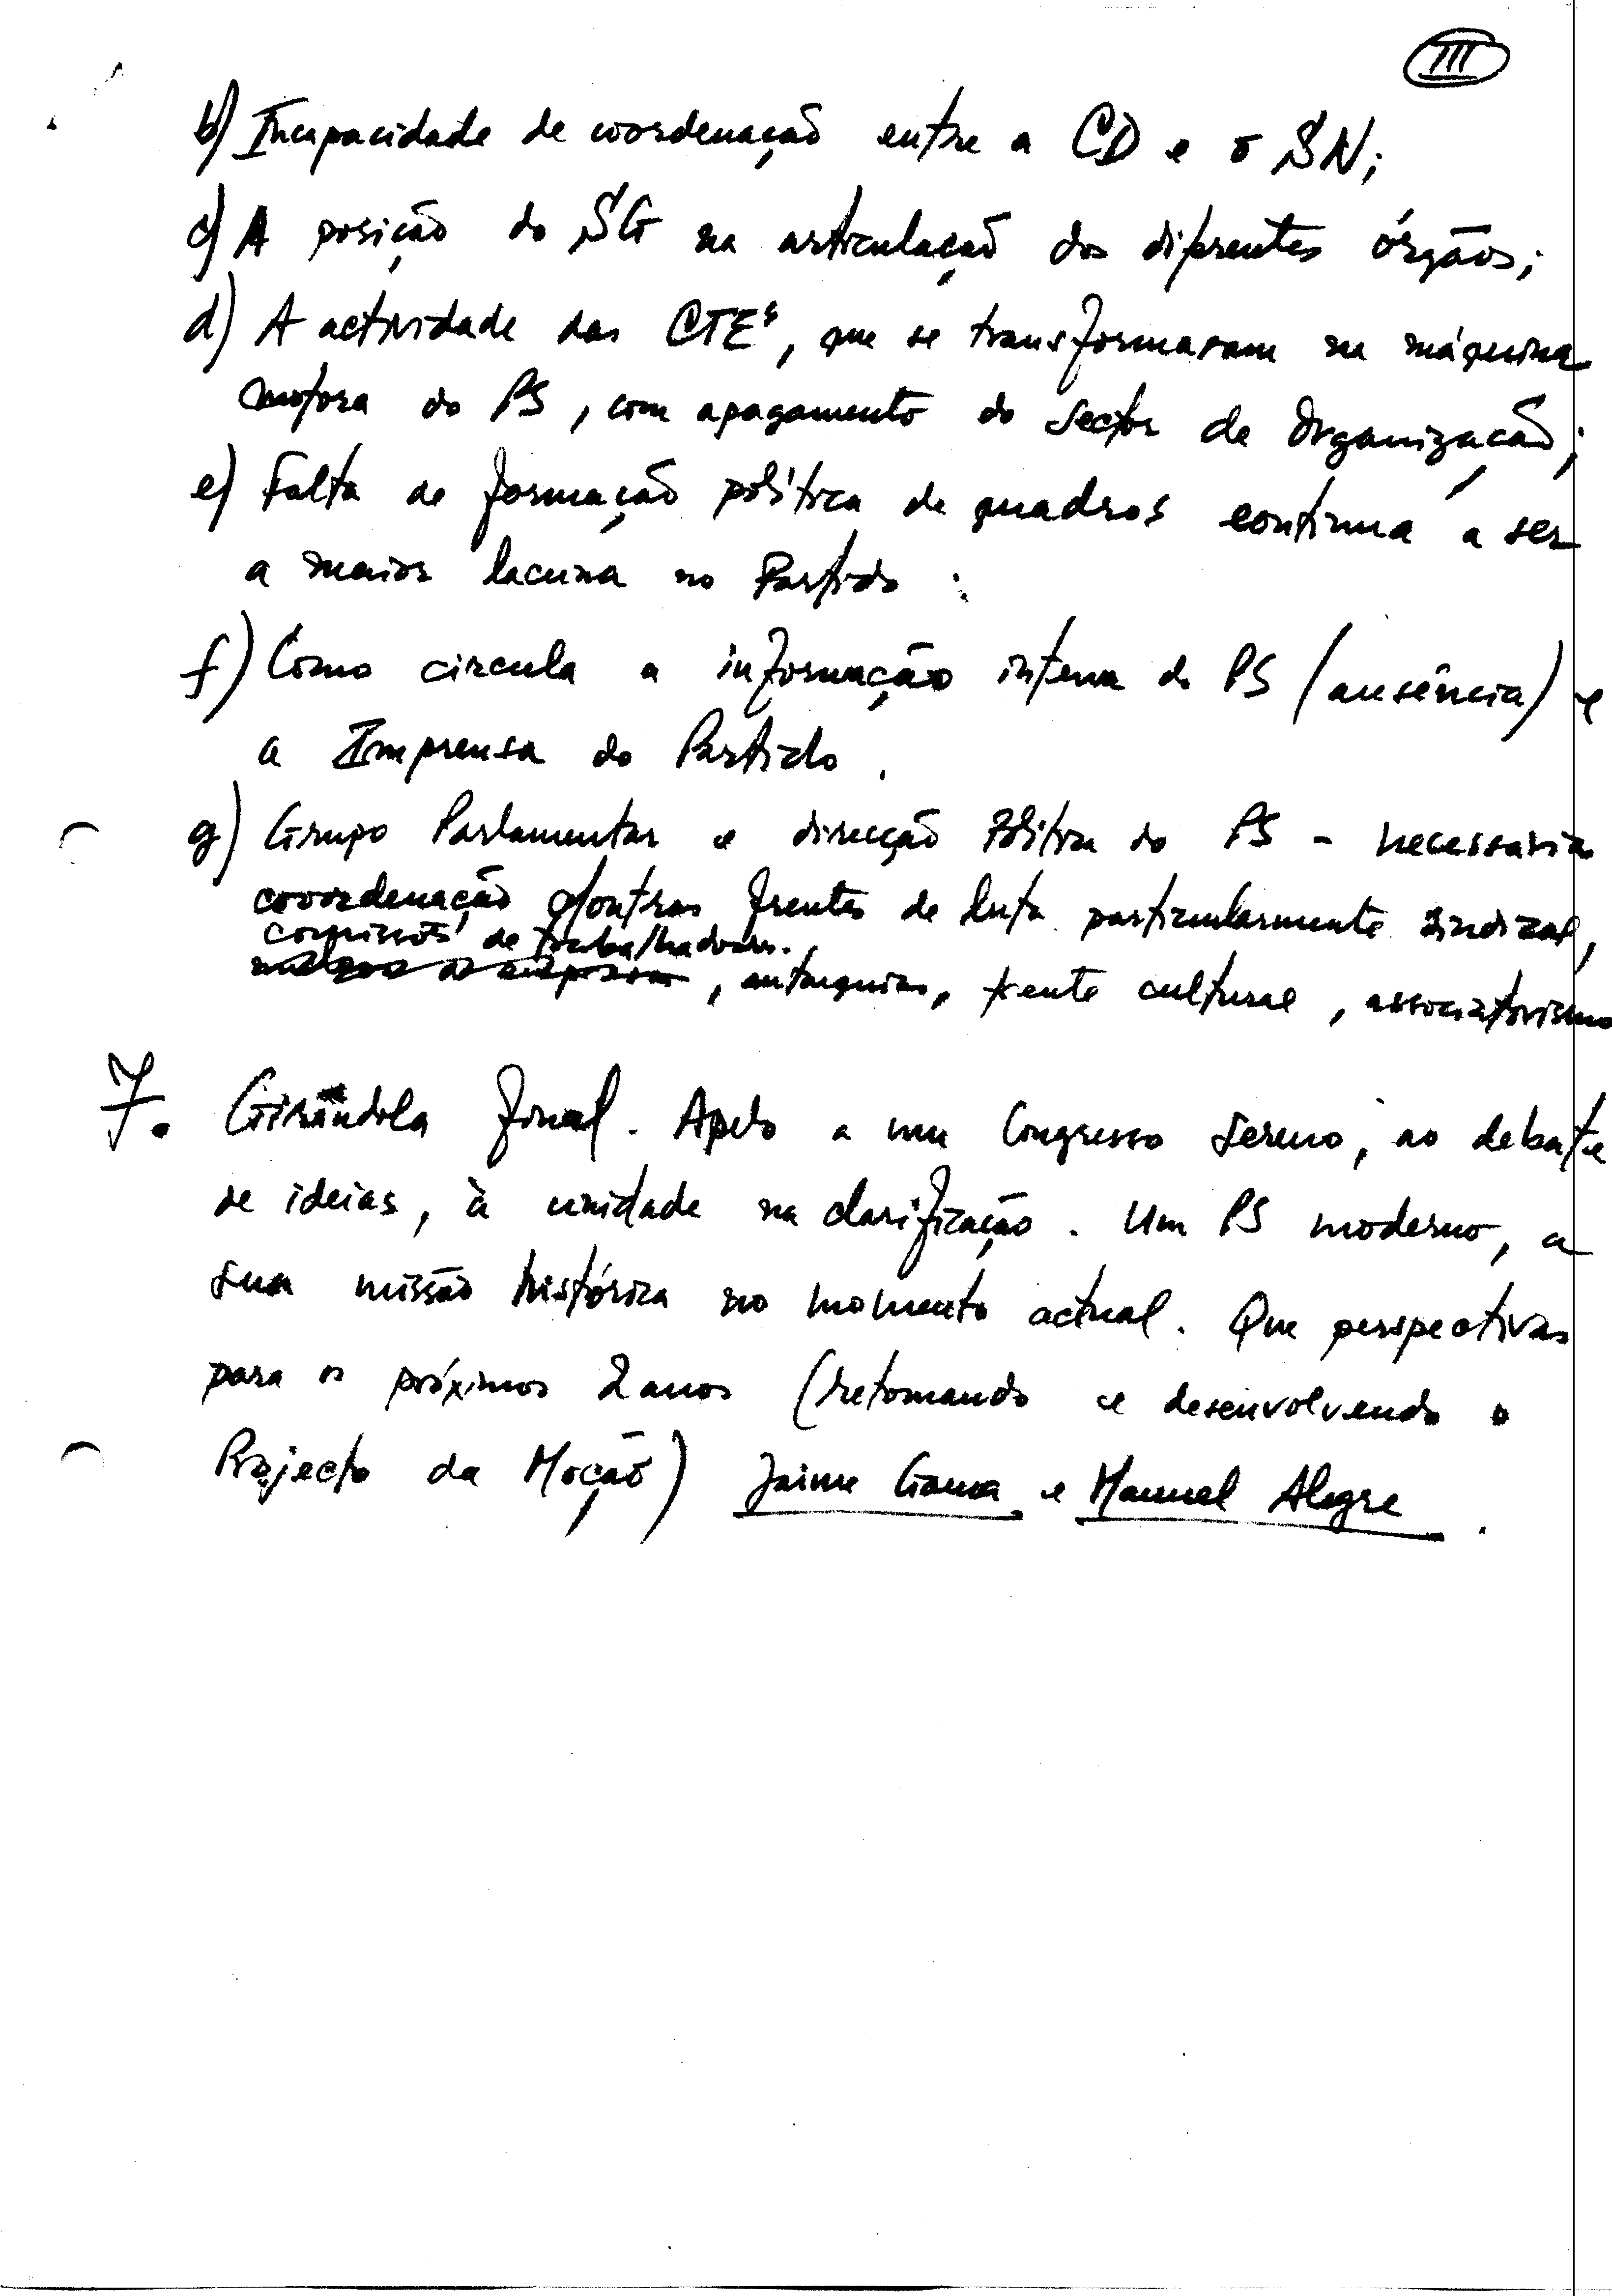 III
b) Incapacidade de coordenação entre a CD e o SN;
c) A posição do SG na articulação dos diferentes órgãos;
d) A actividade das CTEs, que se transformaram na máquina
motora do PS, com apagamento do sector de Organização;
e) Falta de formação política de quadros continua a ser
a maior lacuna no Partido :
f) Como circula a informação interna do PS (ausência) e
a Imprensa do Partido.
g) Grupo Parlamentar e direcção Política do PS - necessária
coordenação c/outras frentes de luta particularmente sindical,
comissões de trabalhadores.
, autarquias, frente cultural, associativismo
7. Girândola final. Apelo a um Congresso sereno, ao debate
de ideias, à unidade na clarificação. Um PS moderno, a
sua missão histórica no momento actual. Que perspectivas
para os próximos 2 anos (retomando e desenvolvendo o
Projecto da Moção) Jaime Gama e Manuel Alegre.